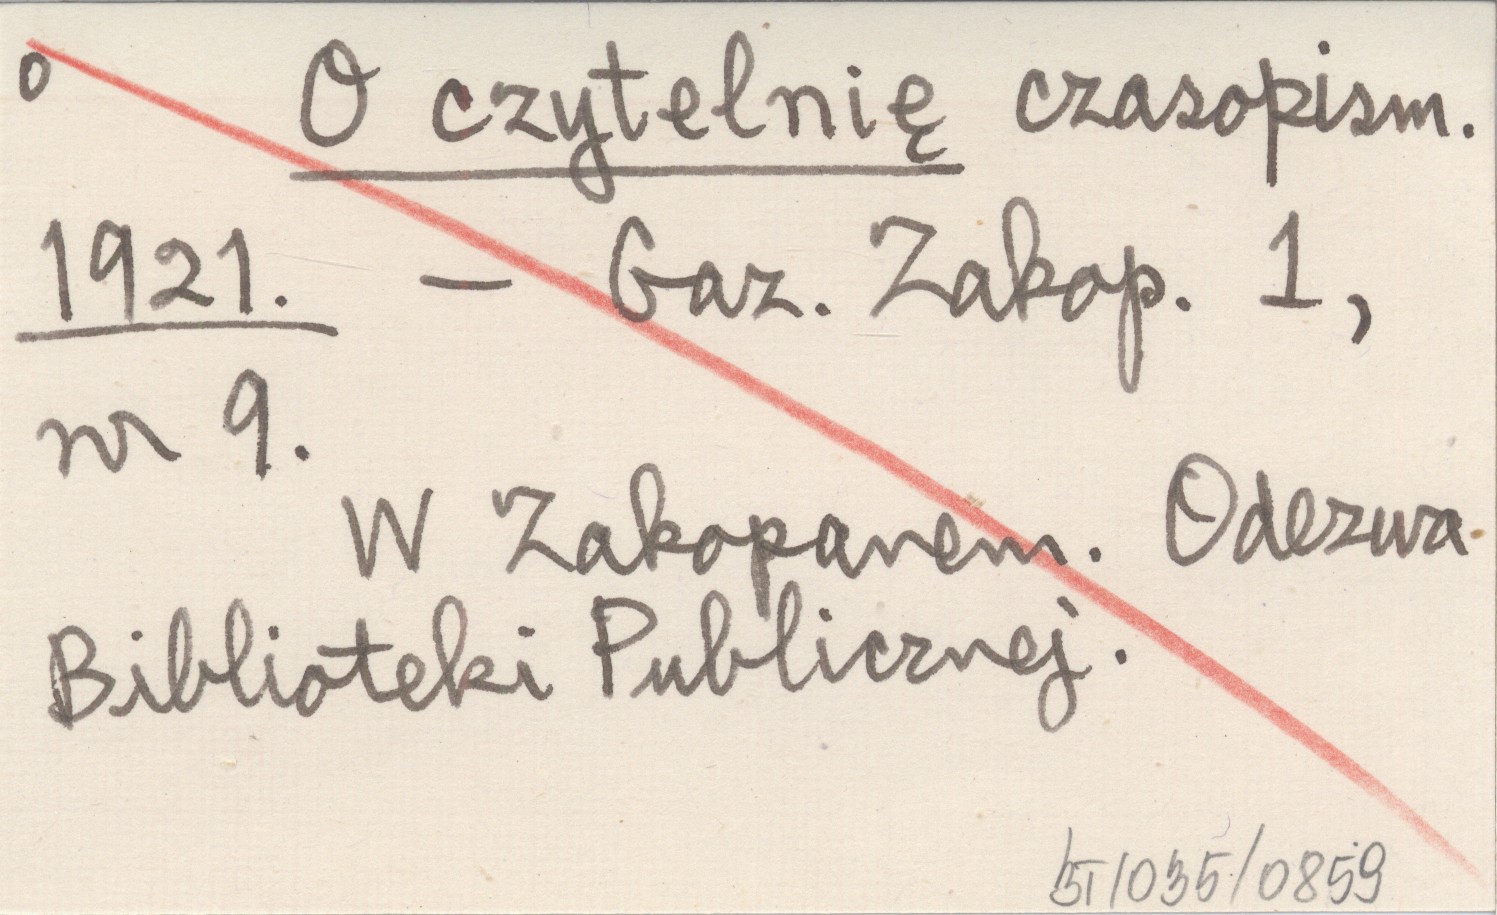 o O czytelnię czasopism.
1921. — Gaz. Zakop. 1,
nr 9.
W Zakopanem. Odezwa
Biblioteki Publicznej.
/035/0859